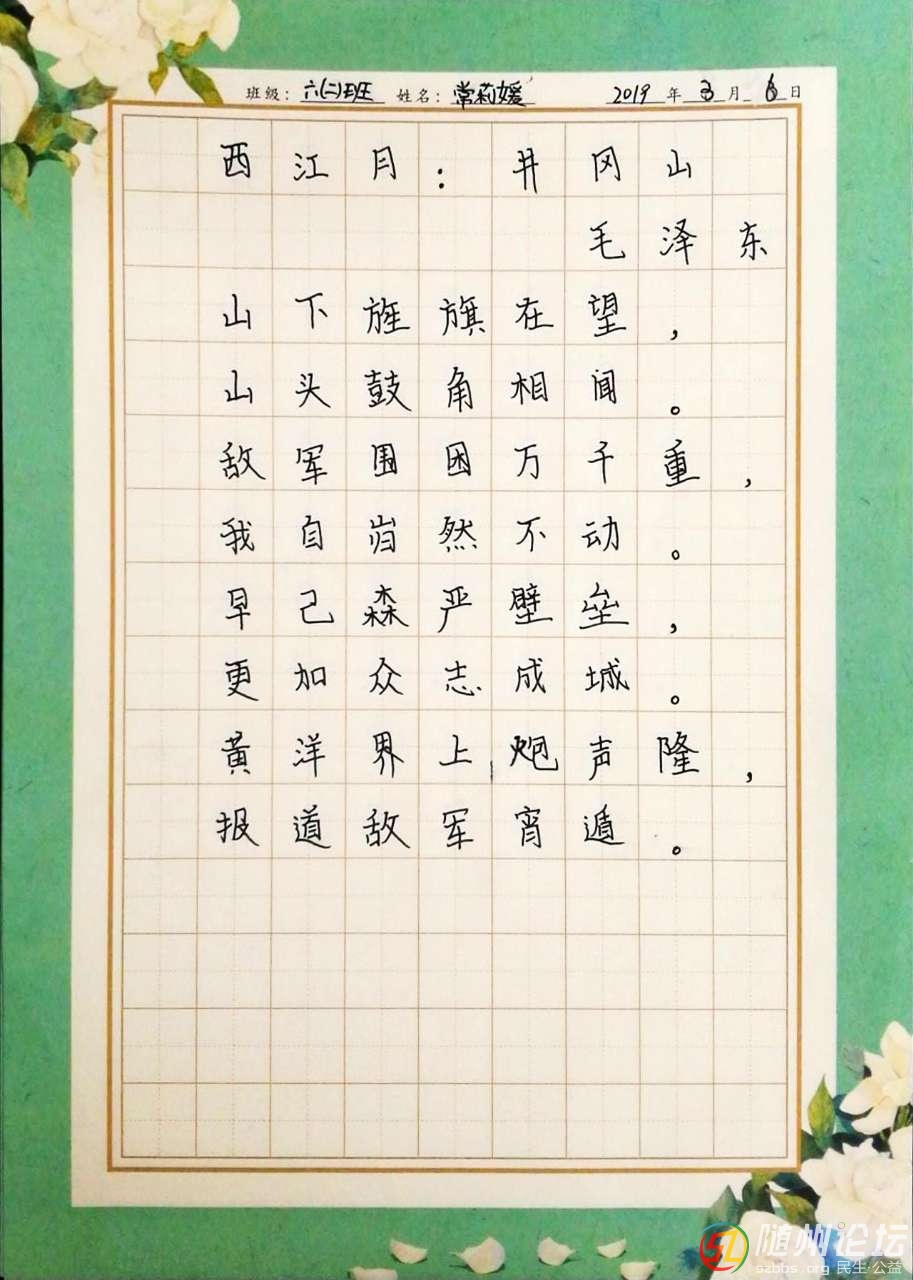 班级：六(二)班 姓名：常莉媛 2019年3月6日
西江月：井冈山
毛泽东
山下旌旗在望，
山头鼓角相闻。
敌军围困万千重，
我自岿然不动。
早己森严壁垒，
更加众志成城。
黄洋界上炮声隆，
报道敌军宵遁。
随州论坛
szbbs.org 民生·公益